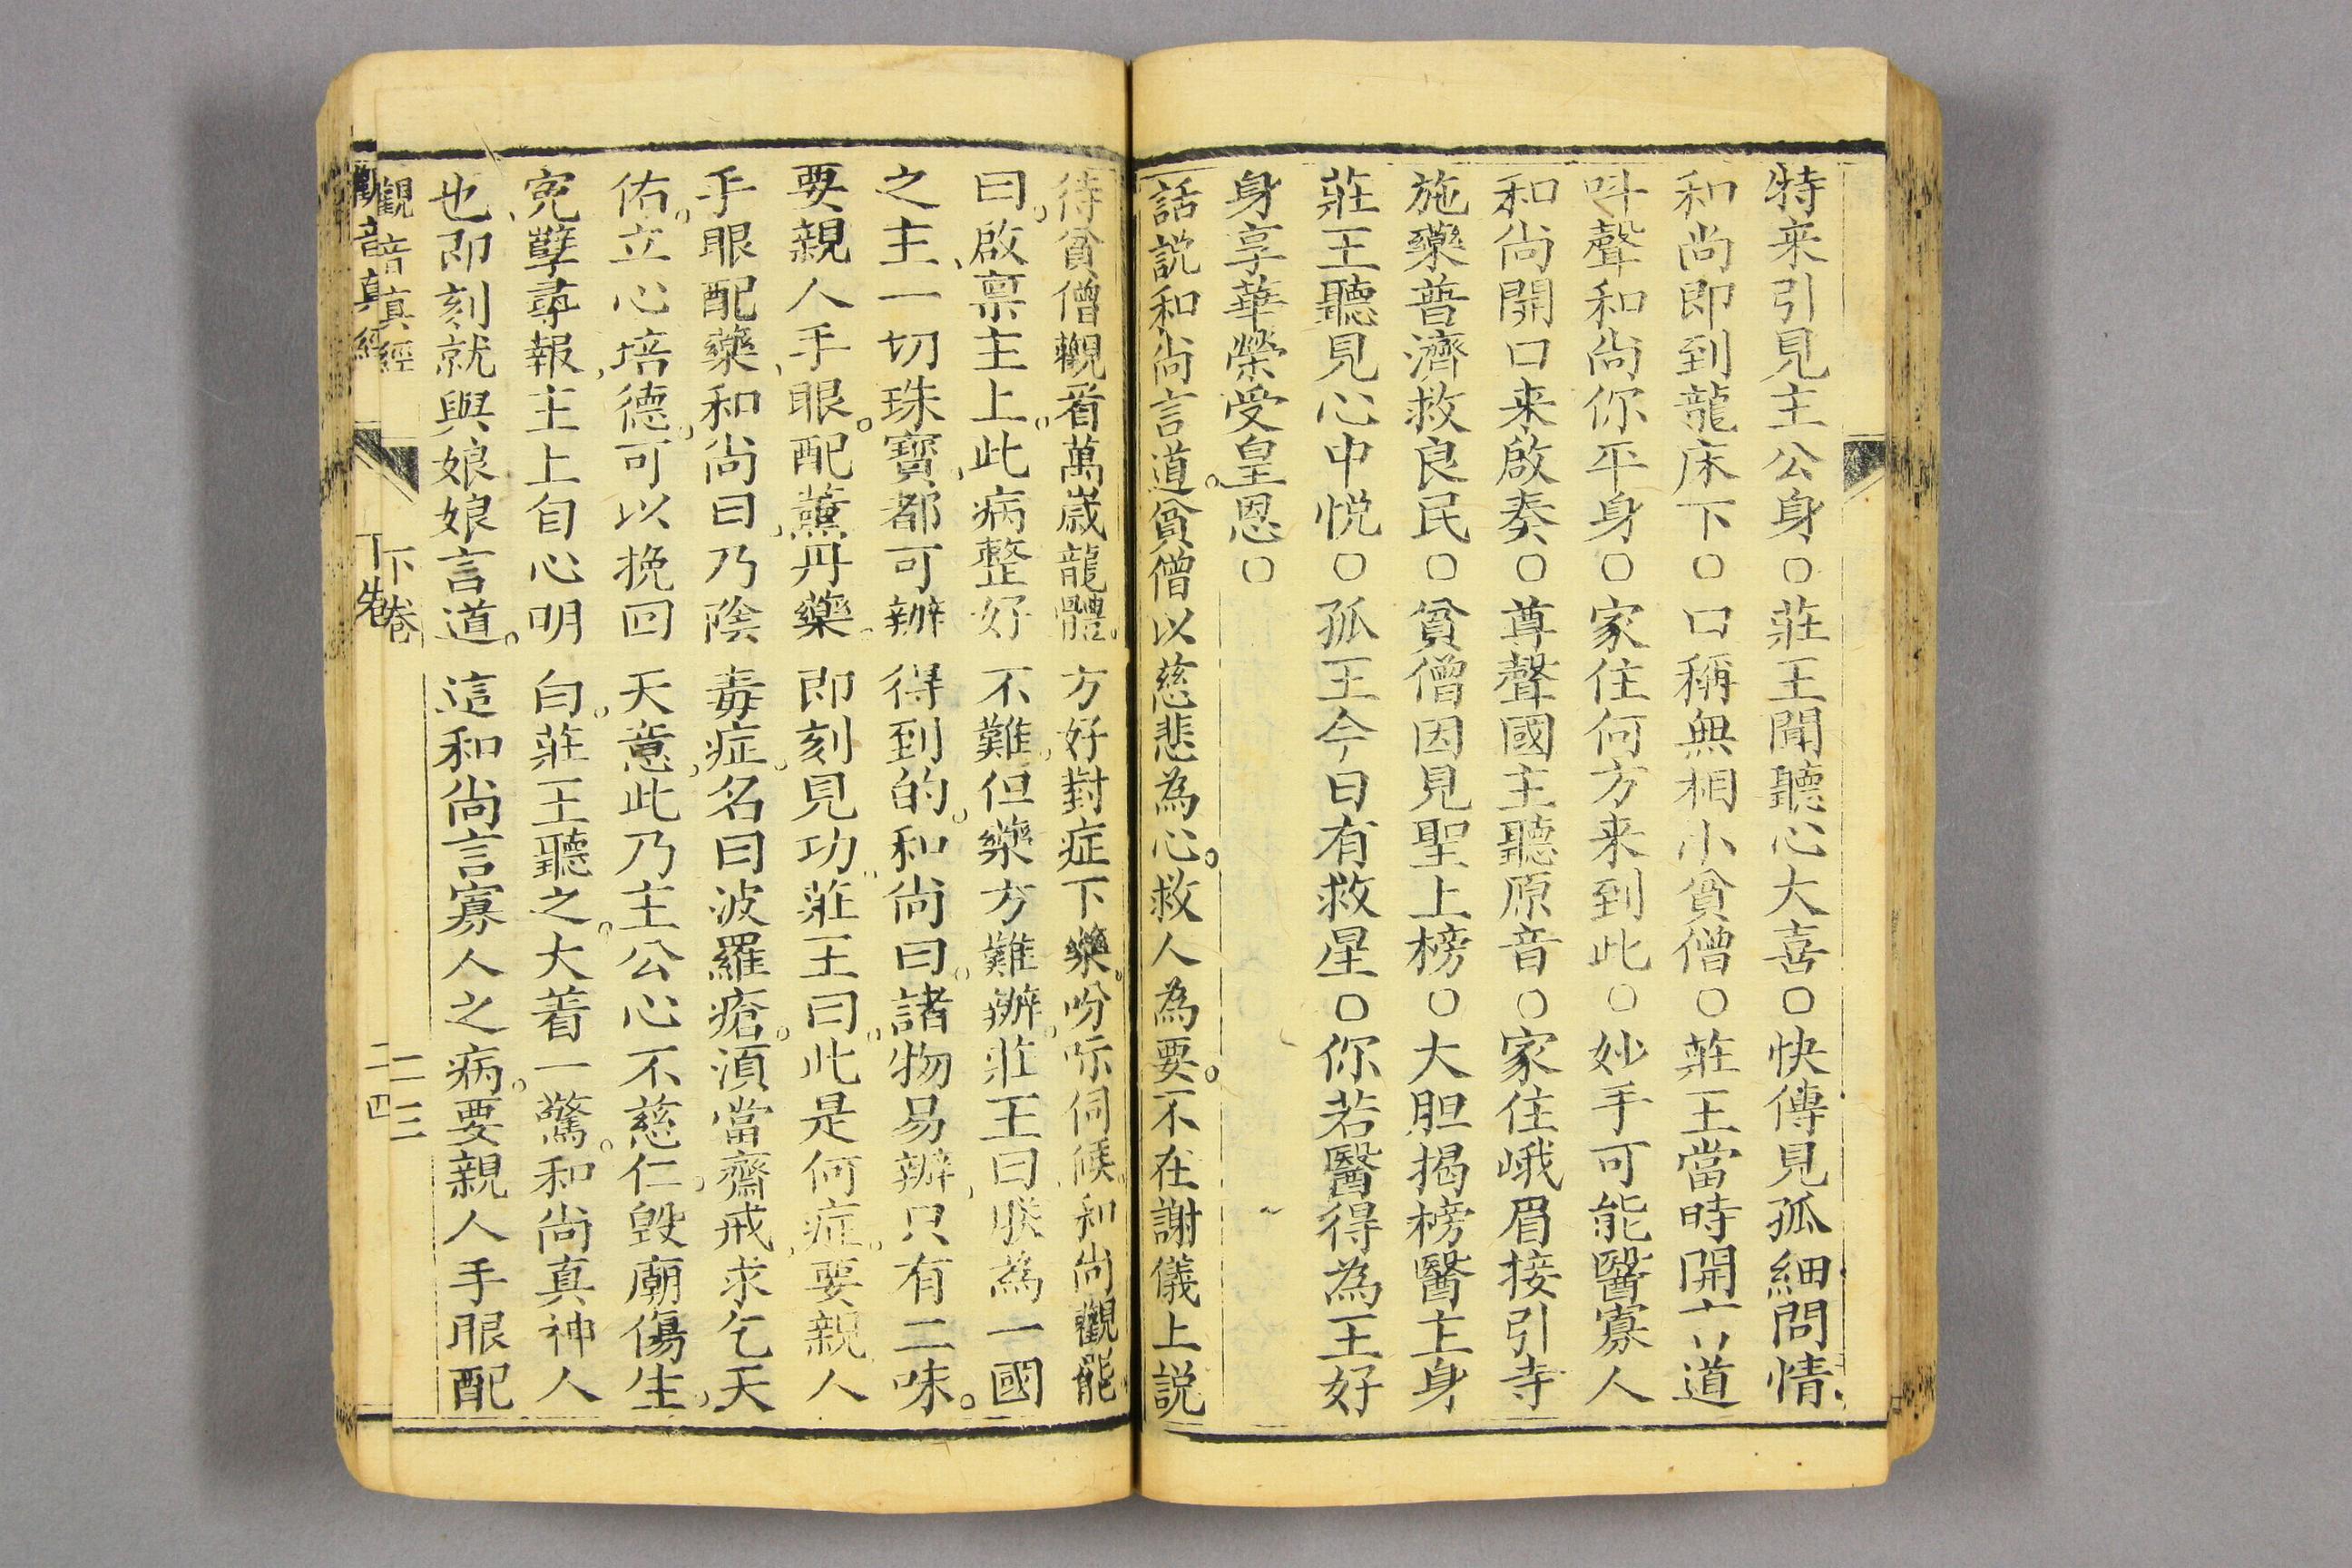 特来引見主公身○莊王聞聽心大喜○快傳見孤細問情
和尚即到龍床下○口稱無相小貧僧○莊王當時開言道
呌聲和尚你平身○家住何方来到此○妙手可能醫寡人
和尚開口来啟奏○尊聲國主聽原音○家住峨眉接引寺
施藥普濟救良民○貧僧因見聖上榜○大胆揭榜醫主身
莊王聽見心中悦○孤王今日有救星○你若醫得為王好
身享華榮受皇恩○
話説和尚言道。貧僧以慈悲為心。救人為要。不在謝儀上説
待貧僧觀看萬歲龍體。方好對症下藥。吩咐伺候。和尚觀罷
曰。啟禀主上。此病整好不難、但藥方難辦。莊王曰朕為一國
之主、一切珠寶、都可辦得到的。和尚曰。諸物易辦、只有二味。
要親人手眼。配薰丹藥。即刻見功。莊王曰。此是何症。要親人
手眼配藥、和尚曰、乃陰毒症。名曰波羅瘡。湏當齋戒、求乞天
佑。立心培德。可以挽回天意、此乃主公心不慈仁、毀廟傷生、
寃孽尋報、主上自心明白。莊王聽之。大着一驚。和尚真神人
也、即刻就與娘娘言道。這和尚言寡人之病。要親人手眼配
觀音真經 下卷 二三
觀音真經 下卷 二四